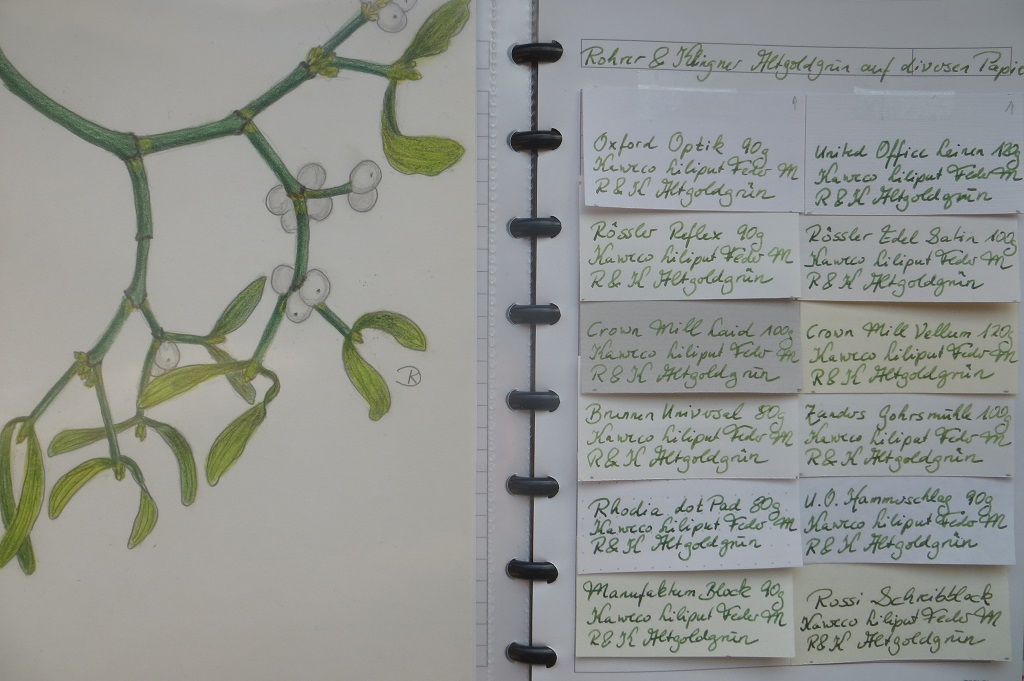 Rohrer & Klingner Altgoldgrün auf diversen Papie
Oxford Optik 90g
Kaweco Liliput Feder M
R & K Altgoldgrün
United Office Leinen 120g
Kaweco Liliput Feder M
R & K Altgoldgrün
Rössler Reflex 90g
Kaweco Liliput Feder M
R & K Altgoldgrün
Rössler Edel Satin 100g
Kaweco Liliput Feder M
R & K Altgoldgrün
Crown Mill Laid 100g
Kaweco Liliput Feder M
R & K Altgoldgrün
Crown Mill Vellum 120g
Kaweco Liliput Feder M
R & K Altgoldgrün
Brunnen Universal 80g
Kaweco Liliput Feder M
R & K Altgoldgrün
Zanders Gohrsmühle 100g
Kaweco Liliput Feder M
R & K Altgoldgrün
Rhodia dot Pad 80g
Kaweco Liliput Feder M
R & K Altgoldgrün
U.O. Hammerschlag 90g
Kaweco Liliput Feder M
R & K Altgoldgrün
Manufaktum Block 90g
Kaweco Liliput Feder M
R & K Altgoldgrün
Rossi Schreibblock
Kaweco Liliput Feder M
R & K Altgoldgrün